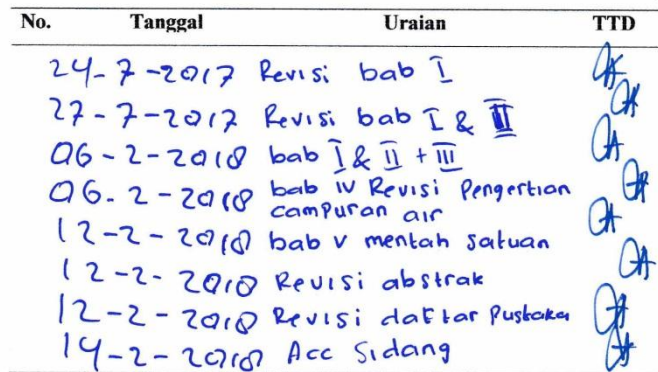 No. Tanggal Uraian TTD
24-7-2017 Revisi bab I
27-7-2017 Revisi bab I & II
06-2-2018 bab I & II + III
06-2-2018 bab IV Revisi Pengertian
campuran air
12-2-2018 bab V mentah satuan
12-2-2018 Revisi abstrak
12-2-2018 Revisi daftar Pustaka
14-2-2018 Acc Sidang